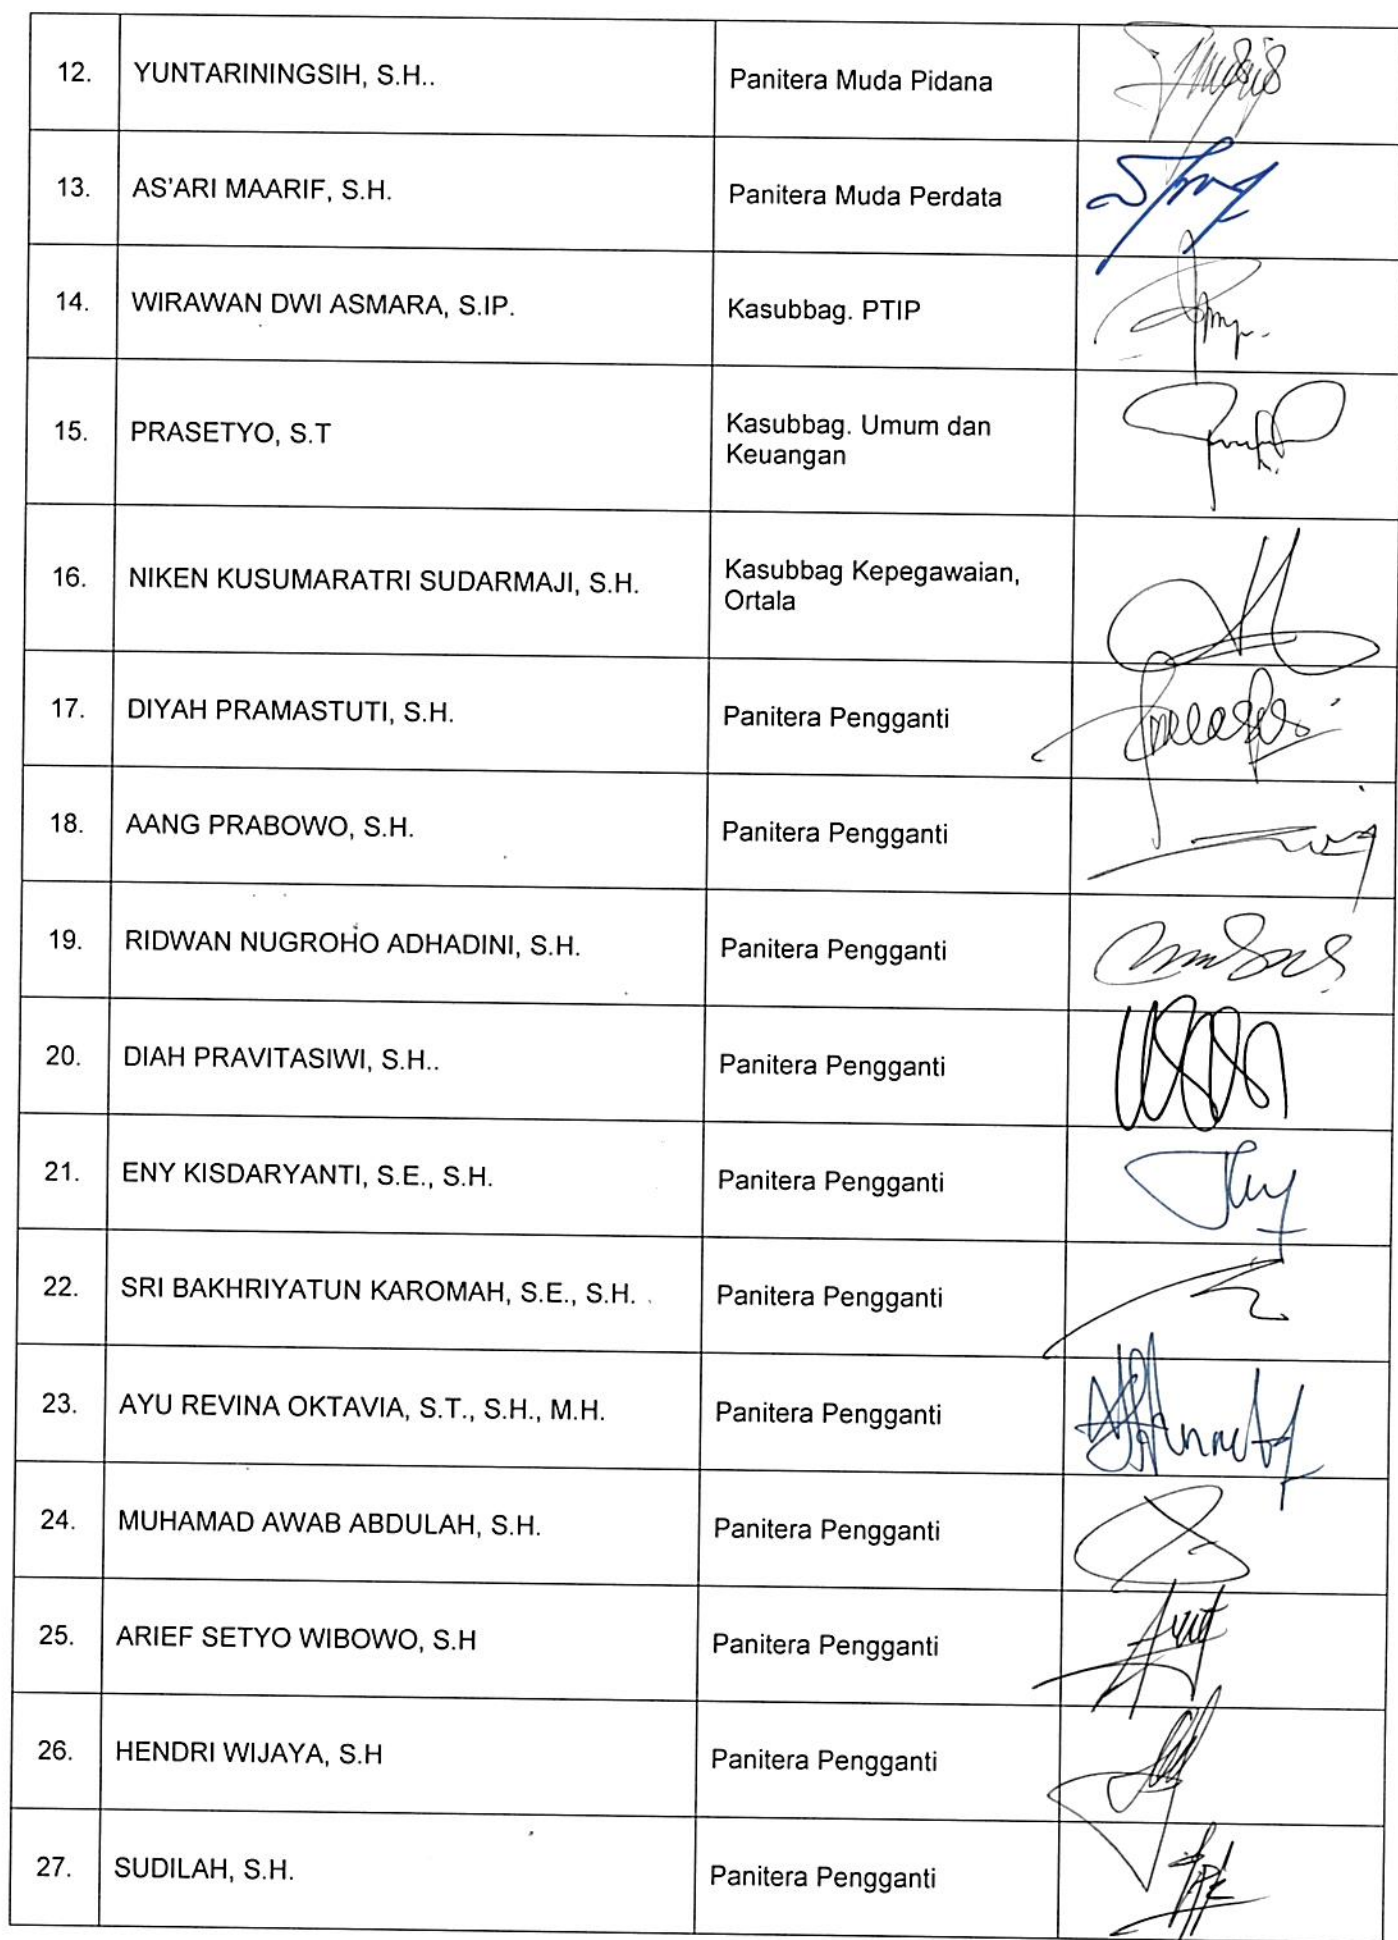 12. YUNTARININGSIH, S.H.. Panitera Muda Pidana
13. AS'ARI MAARIF, S.H. Panitera Muda Perdata
14. WIRAWAN DWI ASMARA, S.IP. Kasubbag. PTIP
15. PRASETYO, S.T Kasubbag. Umum dan
Keuangan
16. NIKEN KUSUMARATRI SUDARMAJI, S.H. Kasubbag Kepegawaian,
Ortala
17. DIYAH PRAMASTUTI, S.H. Panitera Pengganti
18. AANG PRABOWO, S.H. Panitera Pengganti
19. RIDWAN NUGROHO ADHADINI, S.H. Panitera Pengganti
20. DIAH PRAVITASIWI, S.H.. Panitera Pengganti
21. ENY KISDARYANTI, S.E., S.H. Panitera Pengganti
22. SRI BAKHRIYATUN KAROMAH, S.E., S.H. Panitera Pengganti
23. AYU REVINA OKTAVIA, S.T., S.H., M.H. Panitera Pengganti
24. MUHAMAD AWAB ABDULAH, S.H. Panitera Pengganti
25. ARIEF SETYO WIBOWO, S.H Panitera Pengganti
26. HENDRI WIJAYA, S.H Panitera Pengganti
27. SUDILAH, S.H. Panitera Pengganti